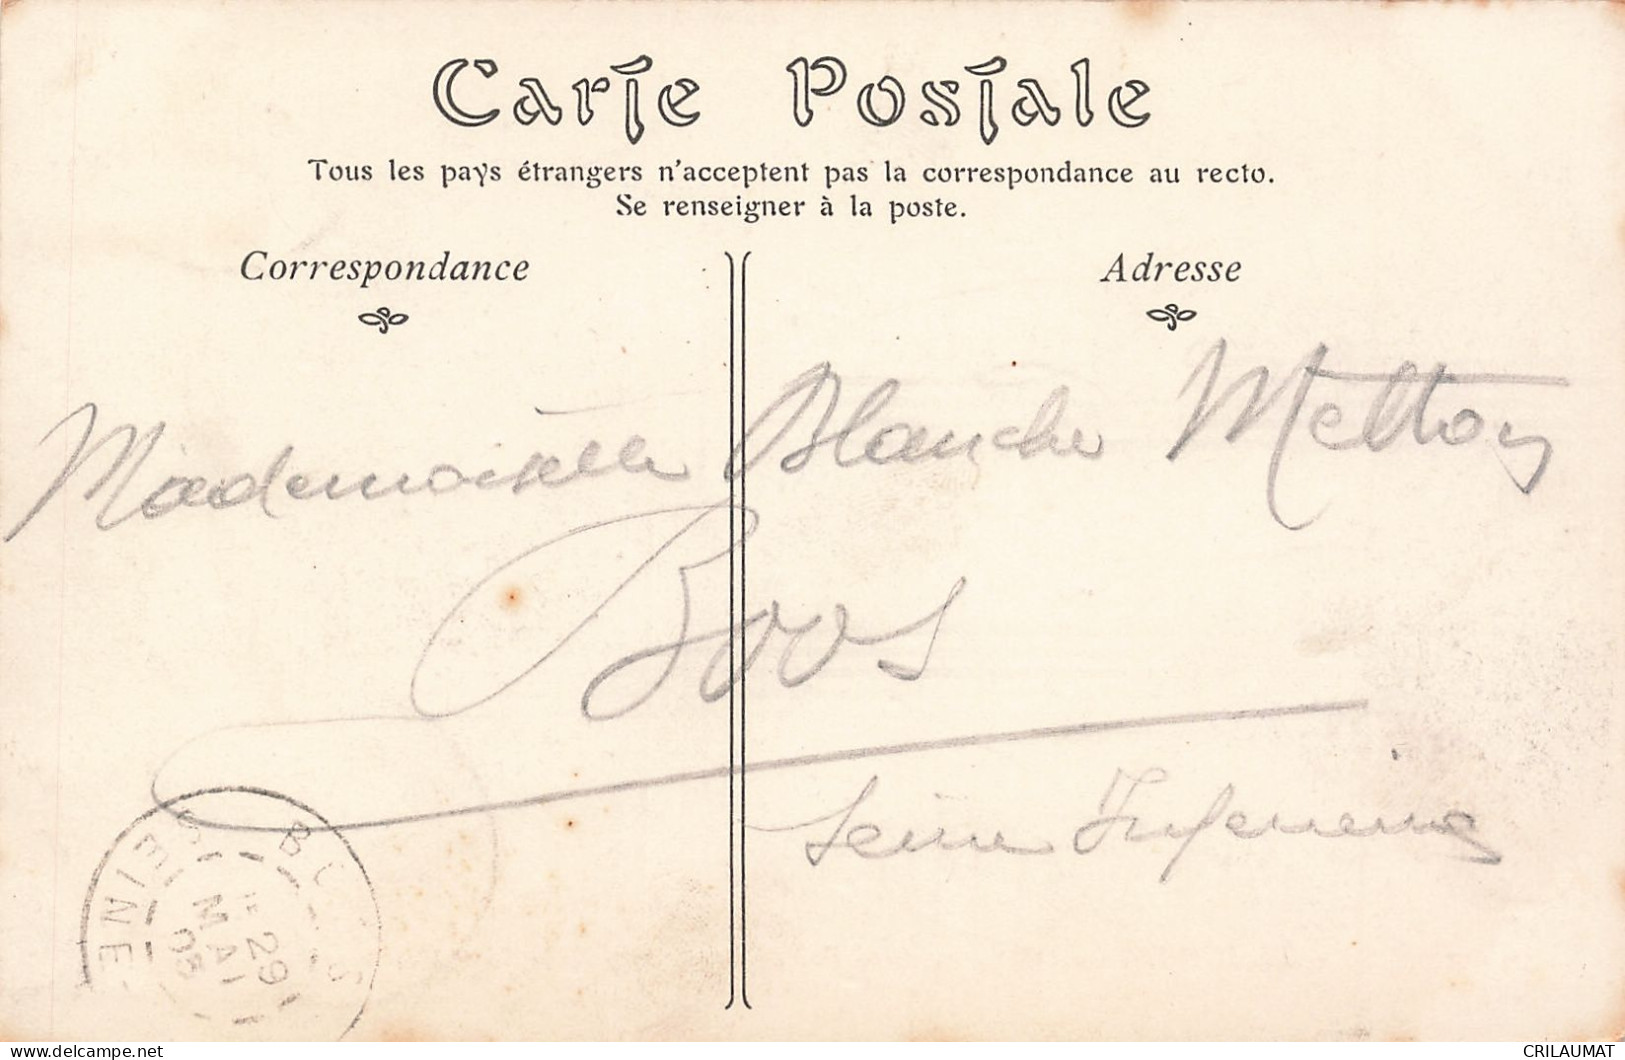 Carte Postale
Tous les pays étrangers n'acceptent pas la correspondance au recto.
Se renseigner à la poste.
Correspondance
Adresse
Mademoiselle Blanche
Boos
Seine Inferieure
29
MAI
SEINE
delcampe.net
CRILAUMAT